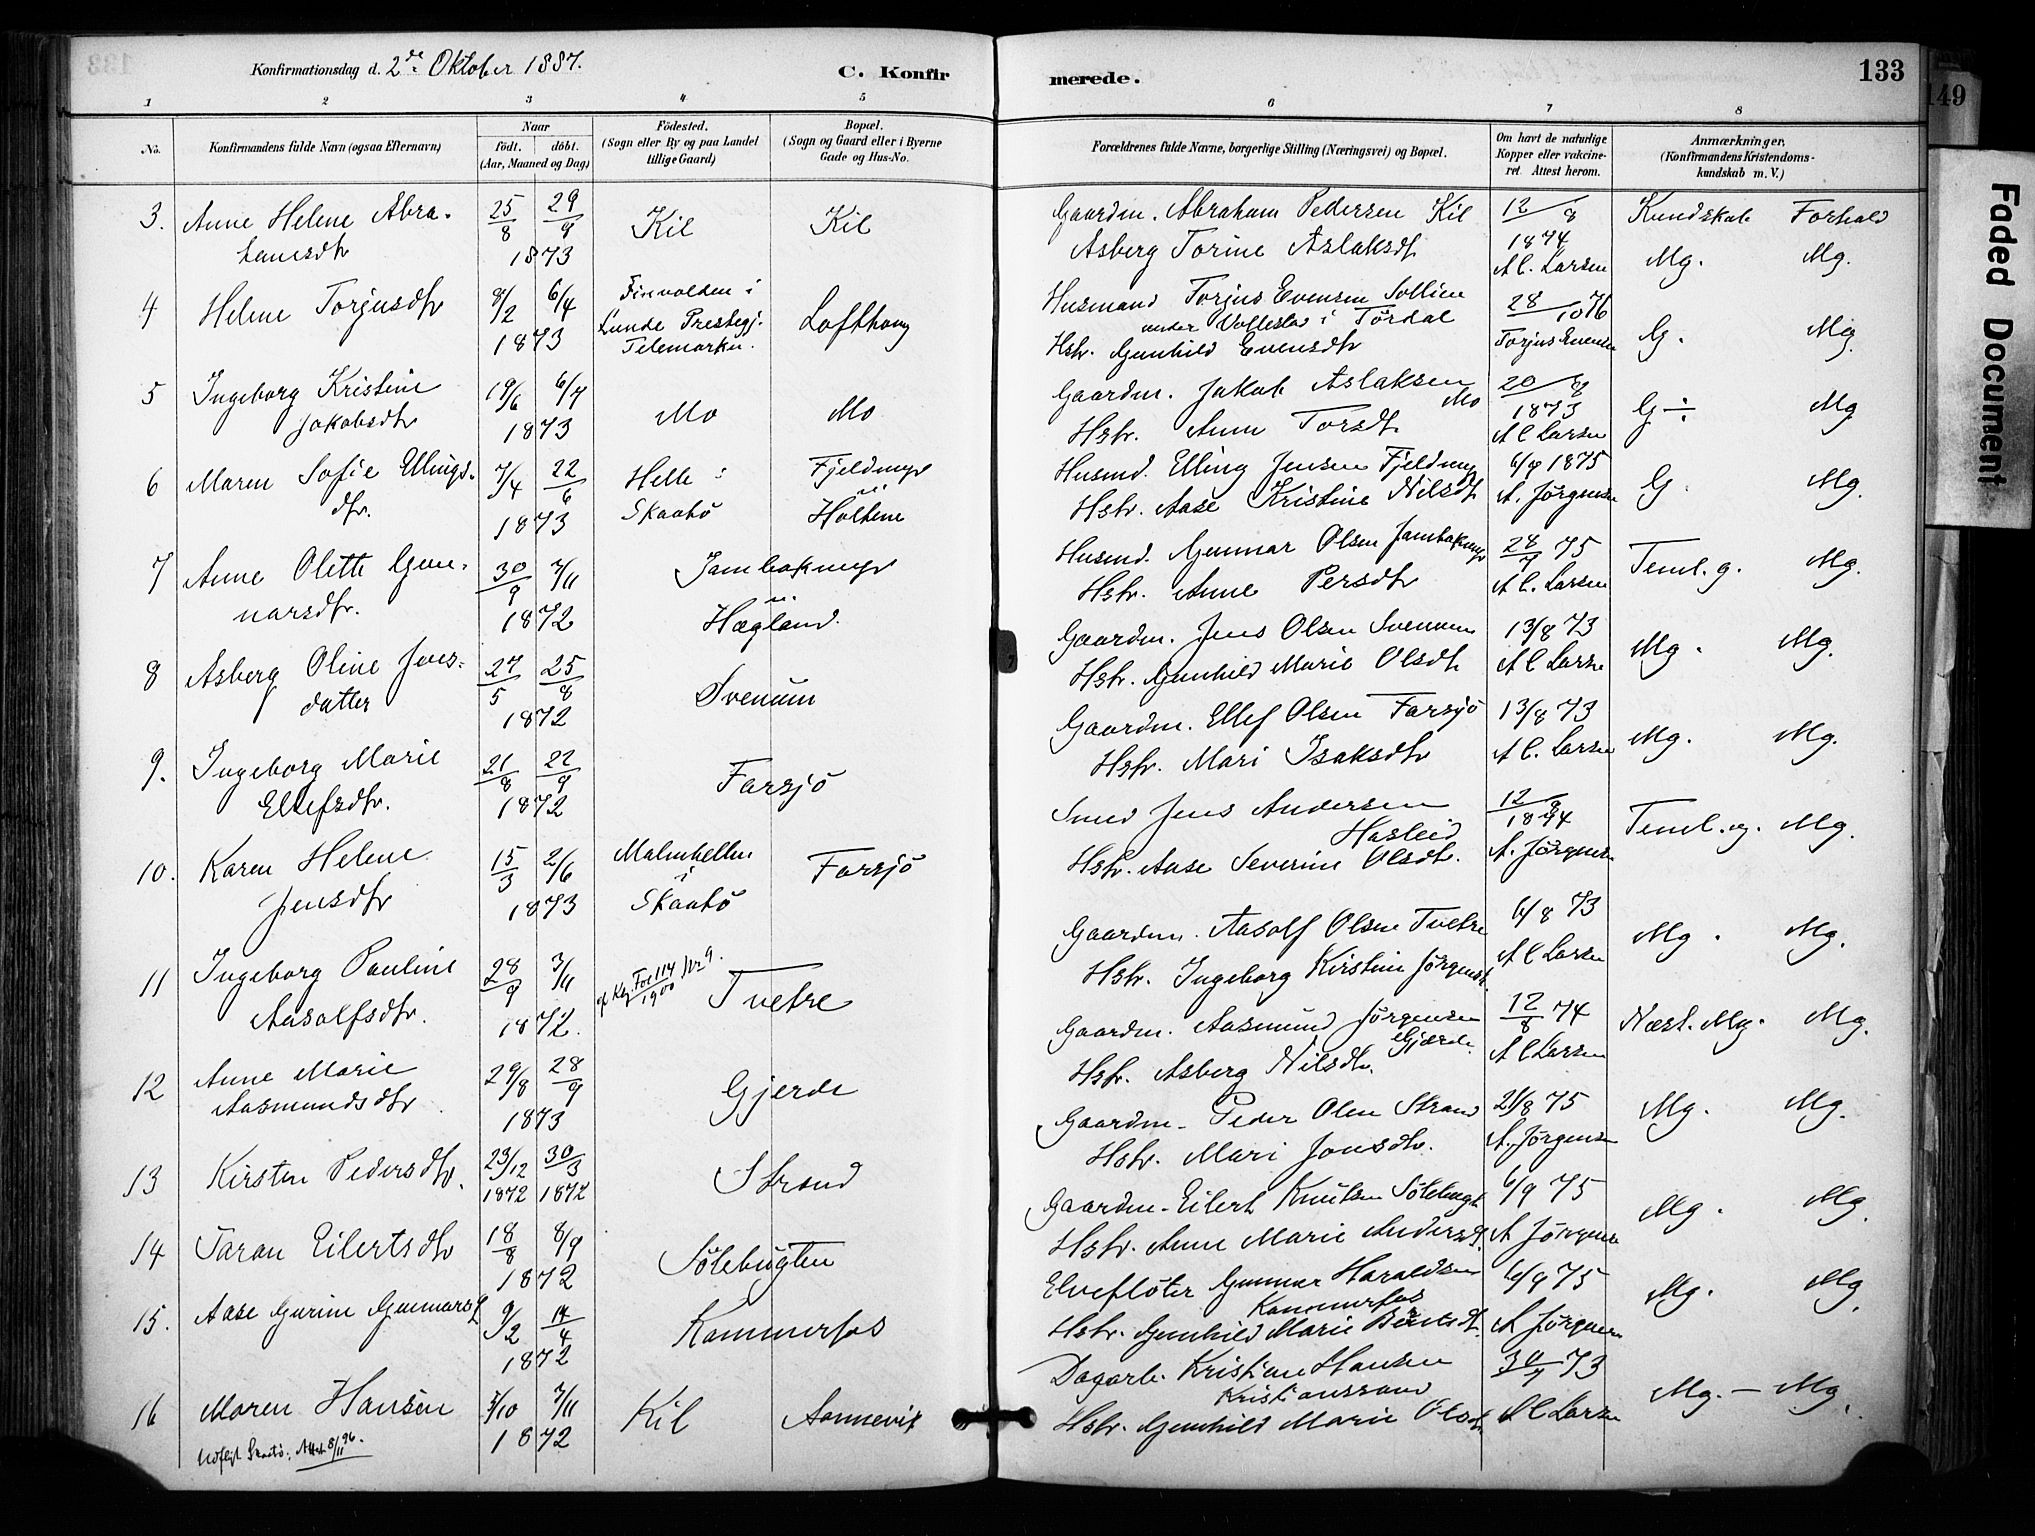 Konfirmationsdag d. 2de Oktober 1887.
C. Konfir
merede.
133
149
1 2 3 4 5 6 7 8
No.
Konfirmandens fulde Navn (ogsaa Efternavn)
Naar
født. døbt.
(Aar, Maaned og Dag)
Fødested.
(Sogn eller By og paa Landet
tillige Gaard)
Bopæl.
(Sogn og Gaard eller i Byerne
Gade og Hus-No.
Forældrenes fulde Navne, borgerlige Stilling (Næringsvei) og Bopæl.
Om havt de naturlige
Kopper eller vakcine-
ret. Attest herom.
Anmærkninger.
(Konfirmandens Kristendoms-
kundskab m. V.)
3. Anne Helene Abra- 25/8 29/9 Kil Kil Gaardm. Abraham Pedersen Kil 12/8 Kundskab Forhold
hamsdtr 1873 Asberg Torine Aslaksdt. 1874 A C. Larsen Mg. Mg.
4 Helene Torjusdtr 8/2 6/4 Finvolden i Lofthaug Husmand Torjus Evensen Sollien 28/10 76 G. Mg.
1873 Lunde Prestegj. under i Tørdal
Telemarken. Hstr. Gunhild Evensdtr Torjus Evensen
5 Ingeborg Kristine 19/6 6/7 Mo Mo Gaardm. Jakob Aslaksen Mo 20/8 G ÷ Mg
Jakobsdtr 1873 Hstr. Anne Torsdt. 1873 A C Larsen
6 Maren Sofie Ellings- 7/4 22/6 Helle i Fjeldmyr Husmd. Elling Jensen Fjeldmyr 6/9 1875 G. Mg.
dtr. 1873 Skaatø u. Holtene Hstr. Aase Kristine Nilsdt A. Jørgensen
7 Anne Olette Gun- 30/9 7/11 Jambakmyr Husmd. Gunnar Olsen Jambakmyr 28/7 75 Teml. g. Mg.
narsdtr. 1872 u. Hægland. Hstr. Anne Persdtr A C. Larsen
8 Asberg Oline Jens- 27/5 25/8 Svenum Gaardm. Jens Olsen Svenum 13/8 73 Mg. Mg.
datter 1872 Hstr. Gunhild Marie Olsdt. A C Larsen
9. Ingeborg Marie 21/8 22/9 Farsjø Gaardm. Ellef Olsen Farsjø 13/8 73 Mg. Mg.
Ellefsdtr. 1872 Hstr. Mari Isaksdtr A C. Larsen
10. Karen Helene 15/3 2/6 Malmhellen Farsjø Smed Jens Andersen Hasleid 12/9 Teml. g. Mg.
Jensdtr 1873 i Skaatø Hstr. Aase Severine Olsdtr. A. Jørgensen
11 Ingeborg Pauline 28/9 3/11 Tvetre Gaardm. Aasolf Olsen Tvetre 6/8 73 Mg. Mg.
Aasolfsdtr. 1872. 1900 Hstr. Ingeborg Kirstine Jørgensdt. A C Larsen
12 Anne Marie 29/8 28/9 Gjerde Gaardm. Aasmund Jørgensen Gjærde. 12/8 74 Næst. Mg. Mg.
Aasmundsdtr 1873 Hstr. Asberg Nilsdtr. A C Larsen
13 Kirsten Pedersdtr. 23/12 30/3 Strand Gaardm. Peder Olsen Strand 21/8 75 Mg. Mg.
1872 1872 Hstr. Mari Jonsdtr. A. Jørgensen
14 Taran Eilertsdtr 18/8 8/9 Sølebugten Gaardm. Eilert Knutsen Sølebugt 6/9 75 Mg. Mg.
1872 Hstr. Anne Marie Andersdt. A Jørgensen
15. Aase Gurine Gunnarsd. 9/2 14/4 Kammerfos Elvefløter Gunnar Haraldsen 6/9 75 Mg. Mg.
1872 Kammerfos
Hstr. Gunhild Marie Berntsdt. A Jørgensen
16 Maren Hansen 3/10 7/11 Kil Aannevik Dagarb. Kristian Hansen 30/7 73 Mg. — Mg.
1872 Kristianssand
Hstr. Gunhild Marie Olsdt. A C Larsen
Udflyt Skaatø. Att. 8/11 96.
Faded Document